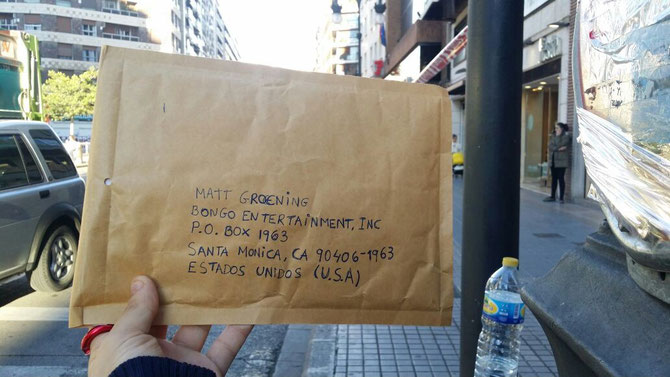 MATT GROENING
BONGO ENTERTAINMENT, INC
P.O. BOX 1963
SANTA MONICA, CA 90406-1963
ESTADOS UNIDOS (U.S.A)